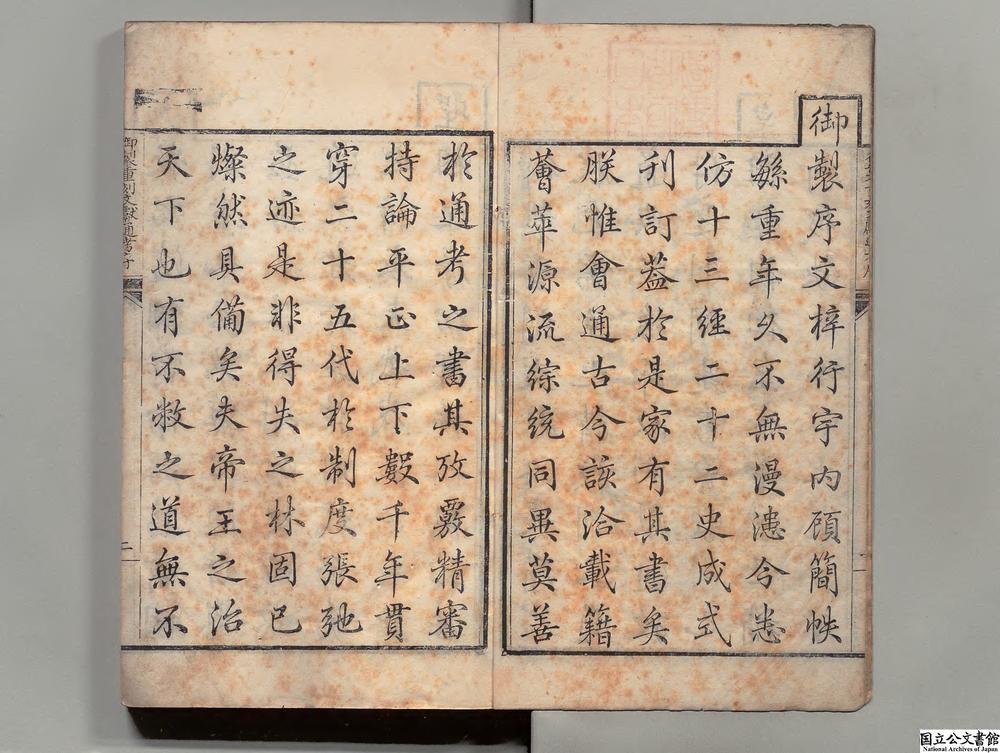 御製序文梓行宇内頋簡帙
緐重年久不無漫漶今悉
仿十三經二十二史成式
刋訂葢於是家有其書矣
朕惟會通古今該洽載籍
薈萃源流綜統同異莫善
於通考之書其攷覈精審
持論平正上下數千年貫
穿二十五代於制度張弛
之迹是非得失之林固已
燦然具備矣夫帝王之治
天下也有不敝之道無不
御製重刻文獻通考序
二
国立公文書館
National Archives of Japan